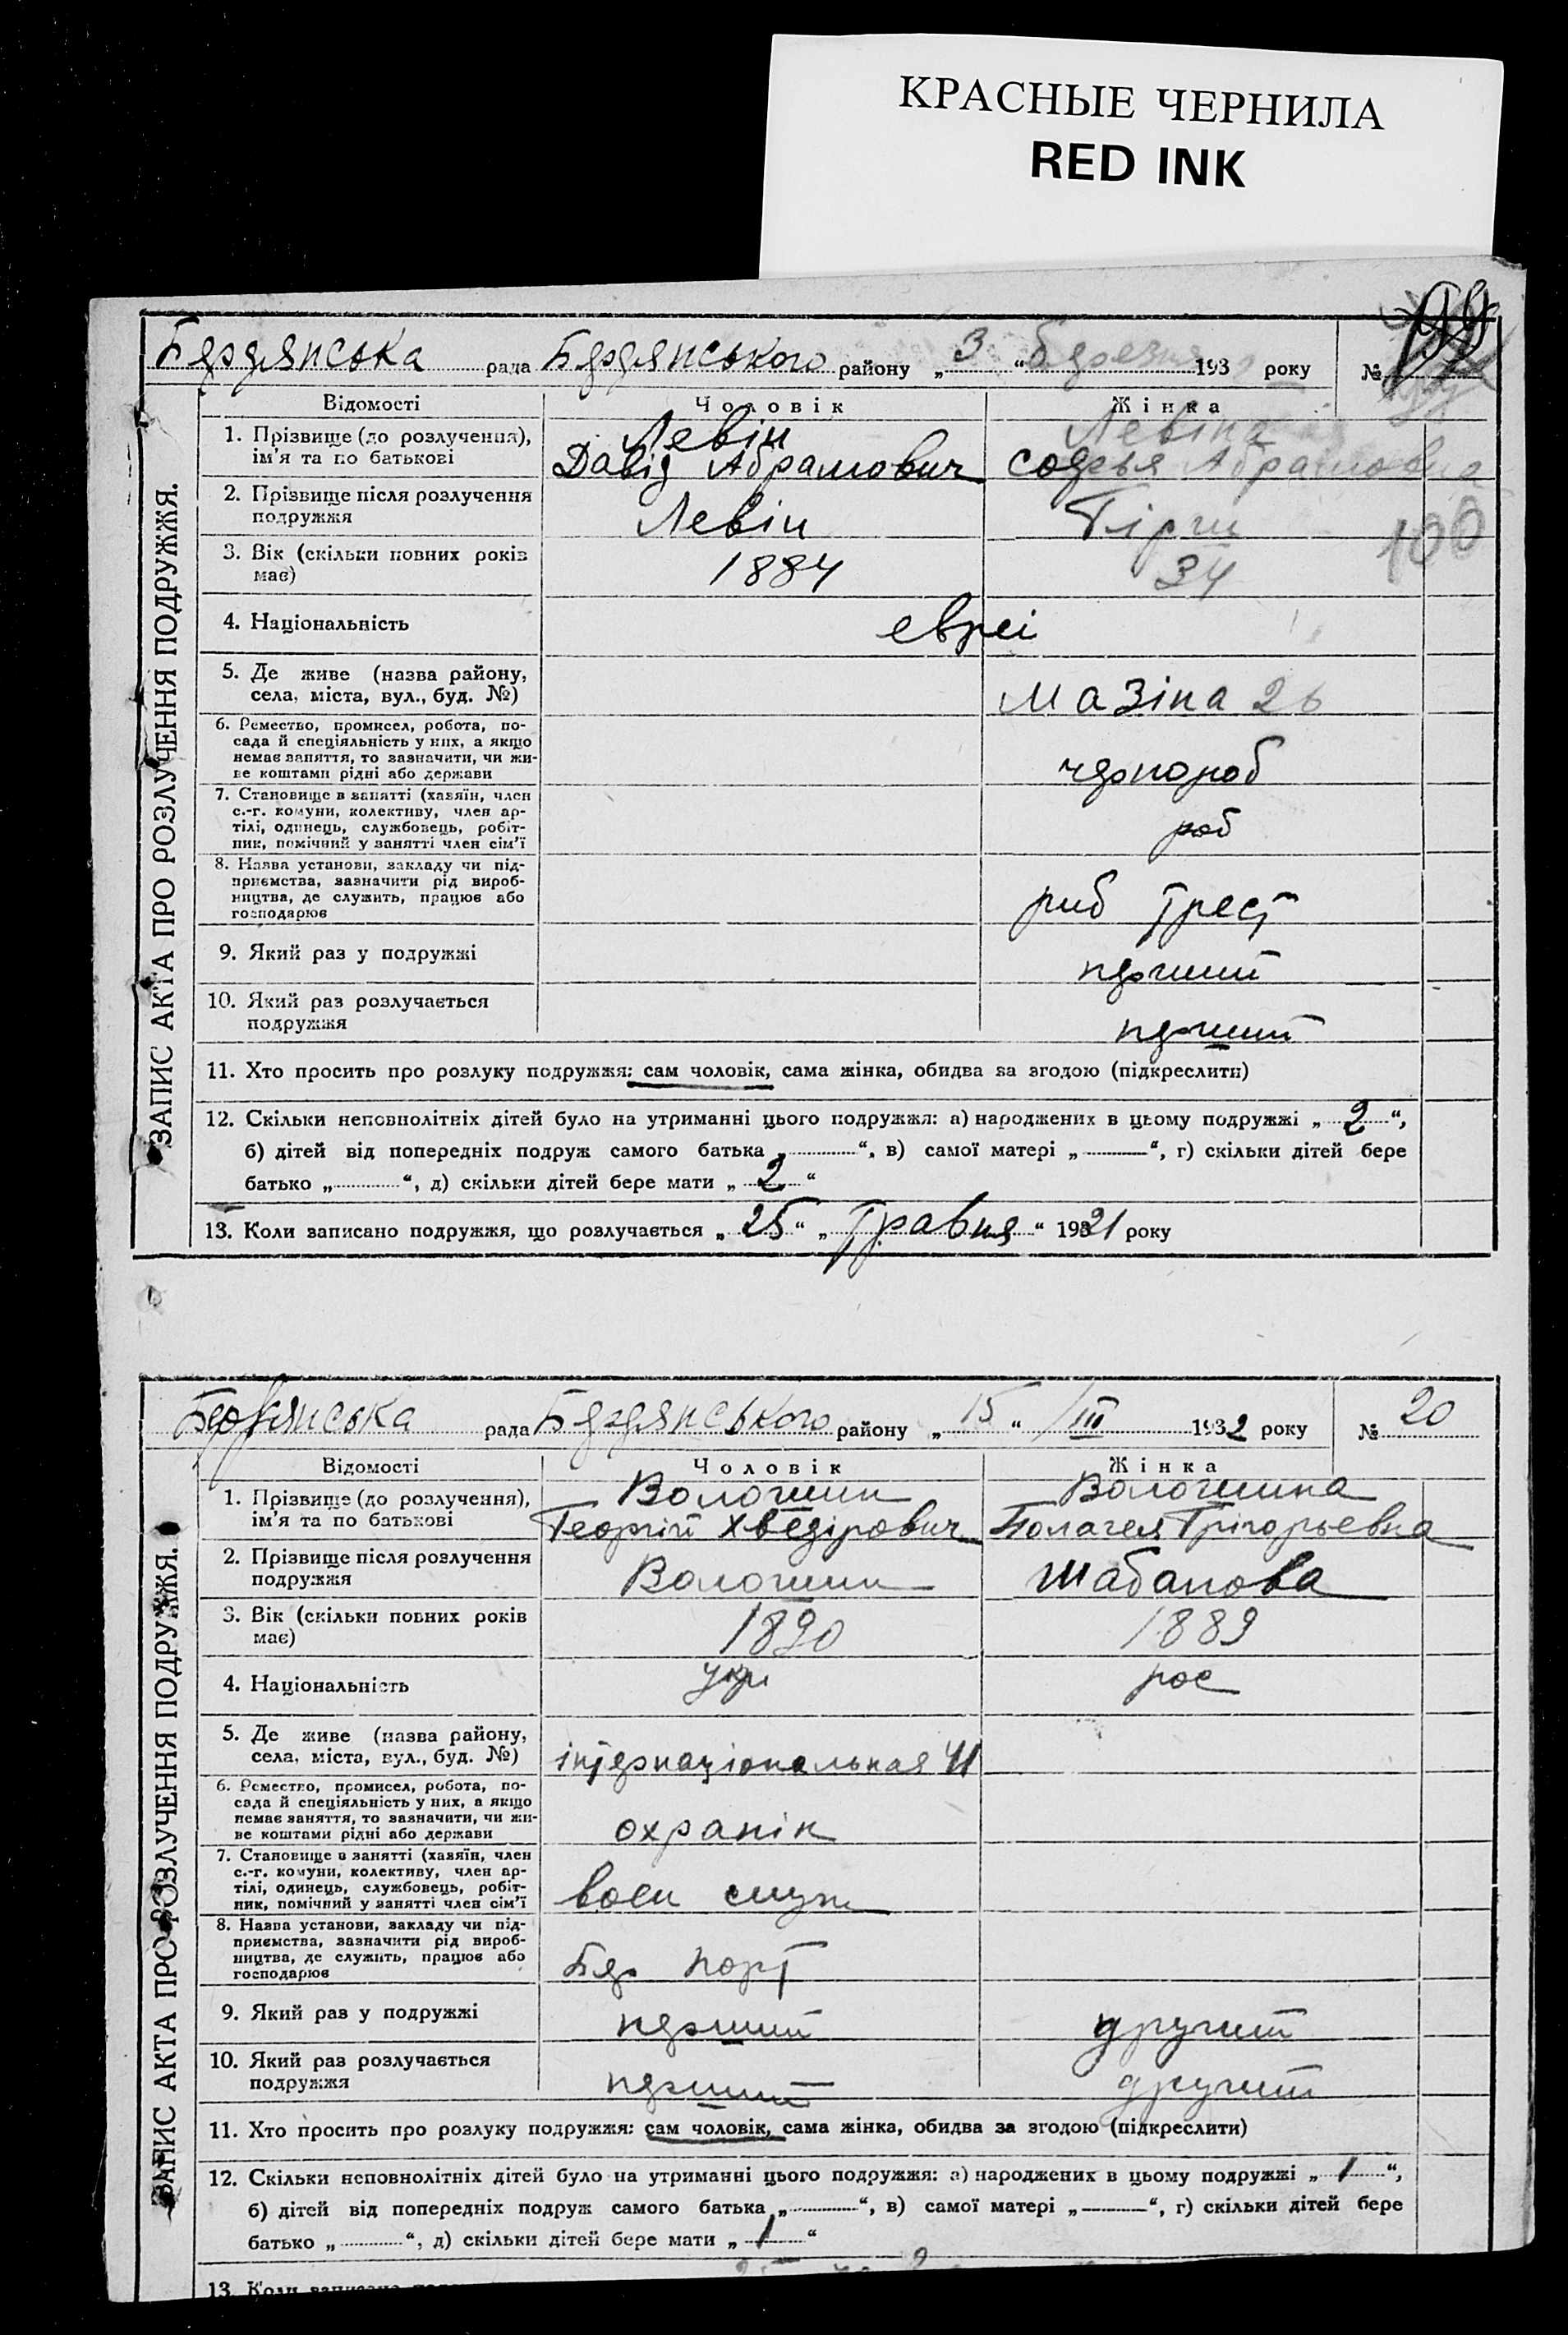 КРАСНЫЕ ЧЕРНИЛА
RED INK
Бердянська рада Бердянського району „ 3 “ березня 193 року №
Відомості Чоловік Жінка
ЗАПИС АКТА ПРО РОЗЛУЧЕННЯ ПОДРУЖЖЯ.
1. Прізвище (до розлучення), Левін Левіна
ім'я та по батькові Давід Абрамович Софья Абрамовна
2. Прізвище після розлучення
подружжя Левін
100
3. Вік (скільки повних років
має) 1884 34
4. Національність евреі
5. Де живе (назва району,
села, міста, вул., буд. №) Мазіна 26
6. Ремество, промисел, робота, по-
сада й спеціяльність у них, а якщо
немає заняття, то зазначити, чи жи-
ве коштами рідні або держави чорнороб
7. Становище в занятті (хазяїн, член
с.-г. комуни, колективу, член ар-
тілі, одинець, службовець, робіт-
ник, помічний у занятті член сім'ї роб
8. Назва установи, закладу чи під-
приємства, зазначити рід вироб-
ництва, де служить, працює або
господарює риб трест
9. Який раз у подружжі перший
10. Який раз розлучається
подружжя перший
11. Хто просить про розлуку подружжя: сам чоловік, сама жінка, обидва за згодою (підкреслити)
12. Скільки неповнолітніх дітей було на утриманні цього подружжя: а) народжених в цьому подружжі „ 2 “,
б) дітей від попередніх подруж самого батька „ “, в) самої матері „ “, г) скільки дітей бере
батько „ “, д) скільки дітей бере мати „ 2 “
13. Коли записано подружжя, що розлучається „ 25 “ „ Травня “ 1921 року
Бердянська рада Бердянського району „ 15 “ / III 1932 року № 20
Відомості Чоловік Жінка
ЗАПИС АКТА ПРО РОЗЛУЧЕННЯ ПОДРУЖЖЯ.
1. Прізвище (до розлучення), Волошин Волошина
ім'я та по батькові Георгій Хведірович Полагея Грігорьевна
2. Прізвище після розлучення
подружжя Волошин Шабанова
3. Вік (скільки повних років
має) 1890 1889
4. Національність укр рос
5. Де живе (назва району,
села, міста, вул., буд. №) інтернаціональная 41
6. Ремество, промисел, робота, по-
сада й спеціяльність у них, а якщо
немає заняття, то зазначити, чи жи-
ве коштами рідні або держави охранік
7. Становище в занятті (хазяїн, член
с.-г. комуни, колективу, член ар-
тілі, одинець, службовець, робіт-
ник, помічний у занятті член сім'ї воен служ
8. Назва установи, закладу чи під-
приємства, зазначити рід вироб-
ництва, де служить, працює або
господарює Бер порт
9. Який раз у подружжі перший другий
10. Який раз розлучається
подружжя перший другий
11. Хто просить про розлуку подружжя: сам чоловік, сама жінка, обидва за згодою (підкреслити)
12. Скільки неповнолітніх дітей було на утриманні цього подружжя: а) народжених в цьому подружжі „ 1 “,
б) дітей від попередніх подруж самого батька „ “, в) самої матері „ “, г) скільки дітей бере
батько „ “, д) скільки дітей бере мати „ 1 “
13. Коли записано